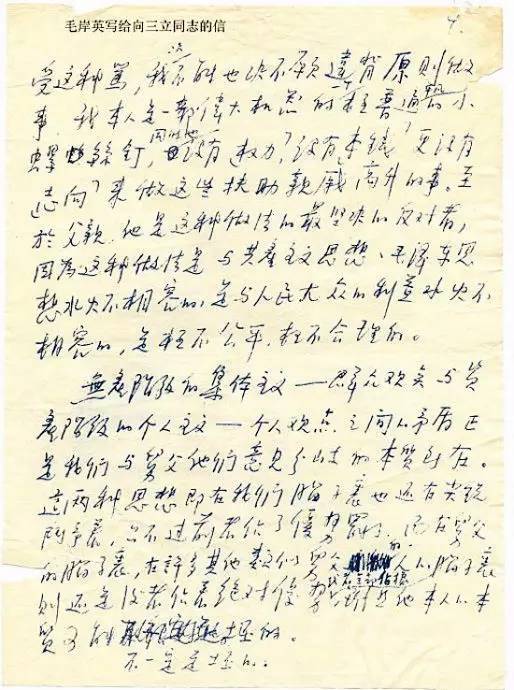 毛岸英写给向三立同志的信
4.
受这种罵,我决不能也决不願違背原则做
事,我本人是一部偉大机器的一个极普通平凡的小
螺丝釘,同时也没有“权力”,没有“本钱”,更没有
“志向”来做这些扶助親戚高升的事。至
於父親,他是这种做法的最坚决的反对者,
因為这种做法是与共產主义思想、毛泽东思
想水火不相容的,是与人民大众的利益水火不
相容的,是极不公平,极不合理的。
無產階级的集体主义——群众观点与资
產階级的个人主义——个人观点之间的矛盾正
是我们与舅父他们意見分歧的本质所在。
這两种思想即在我们脑子裏也还在尖锐
鬥争着,只不过前者佔了優势罷了。而在舅父
的脑子裏,在許多其他类似舅父的人的脑子裏
则还是後者佔着绝对優势,或者全部佔據,雖然他本人的本
质可能
不一定是坏的。